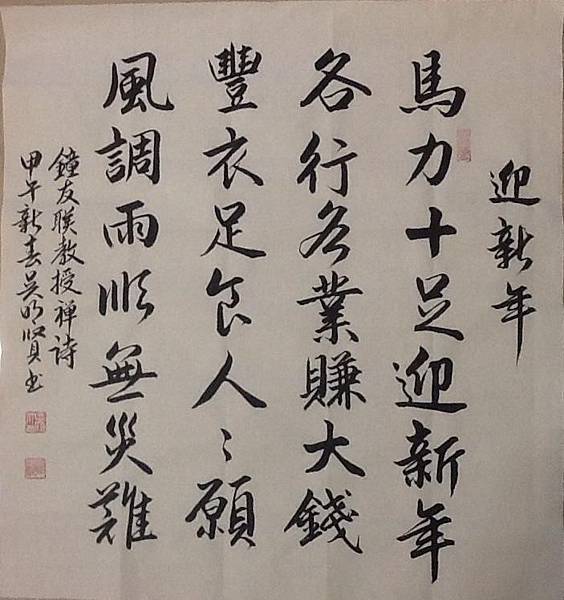 迎新年
馬力十足迎新年
各行各業賺大錢
豐衣足食人〻願
風調雨順無災難
鐘友聯教授禪詩
甲午新春吳明賢書